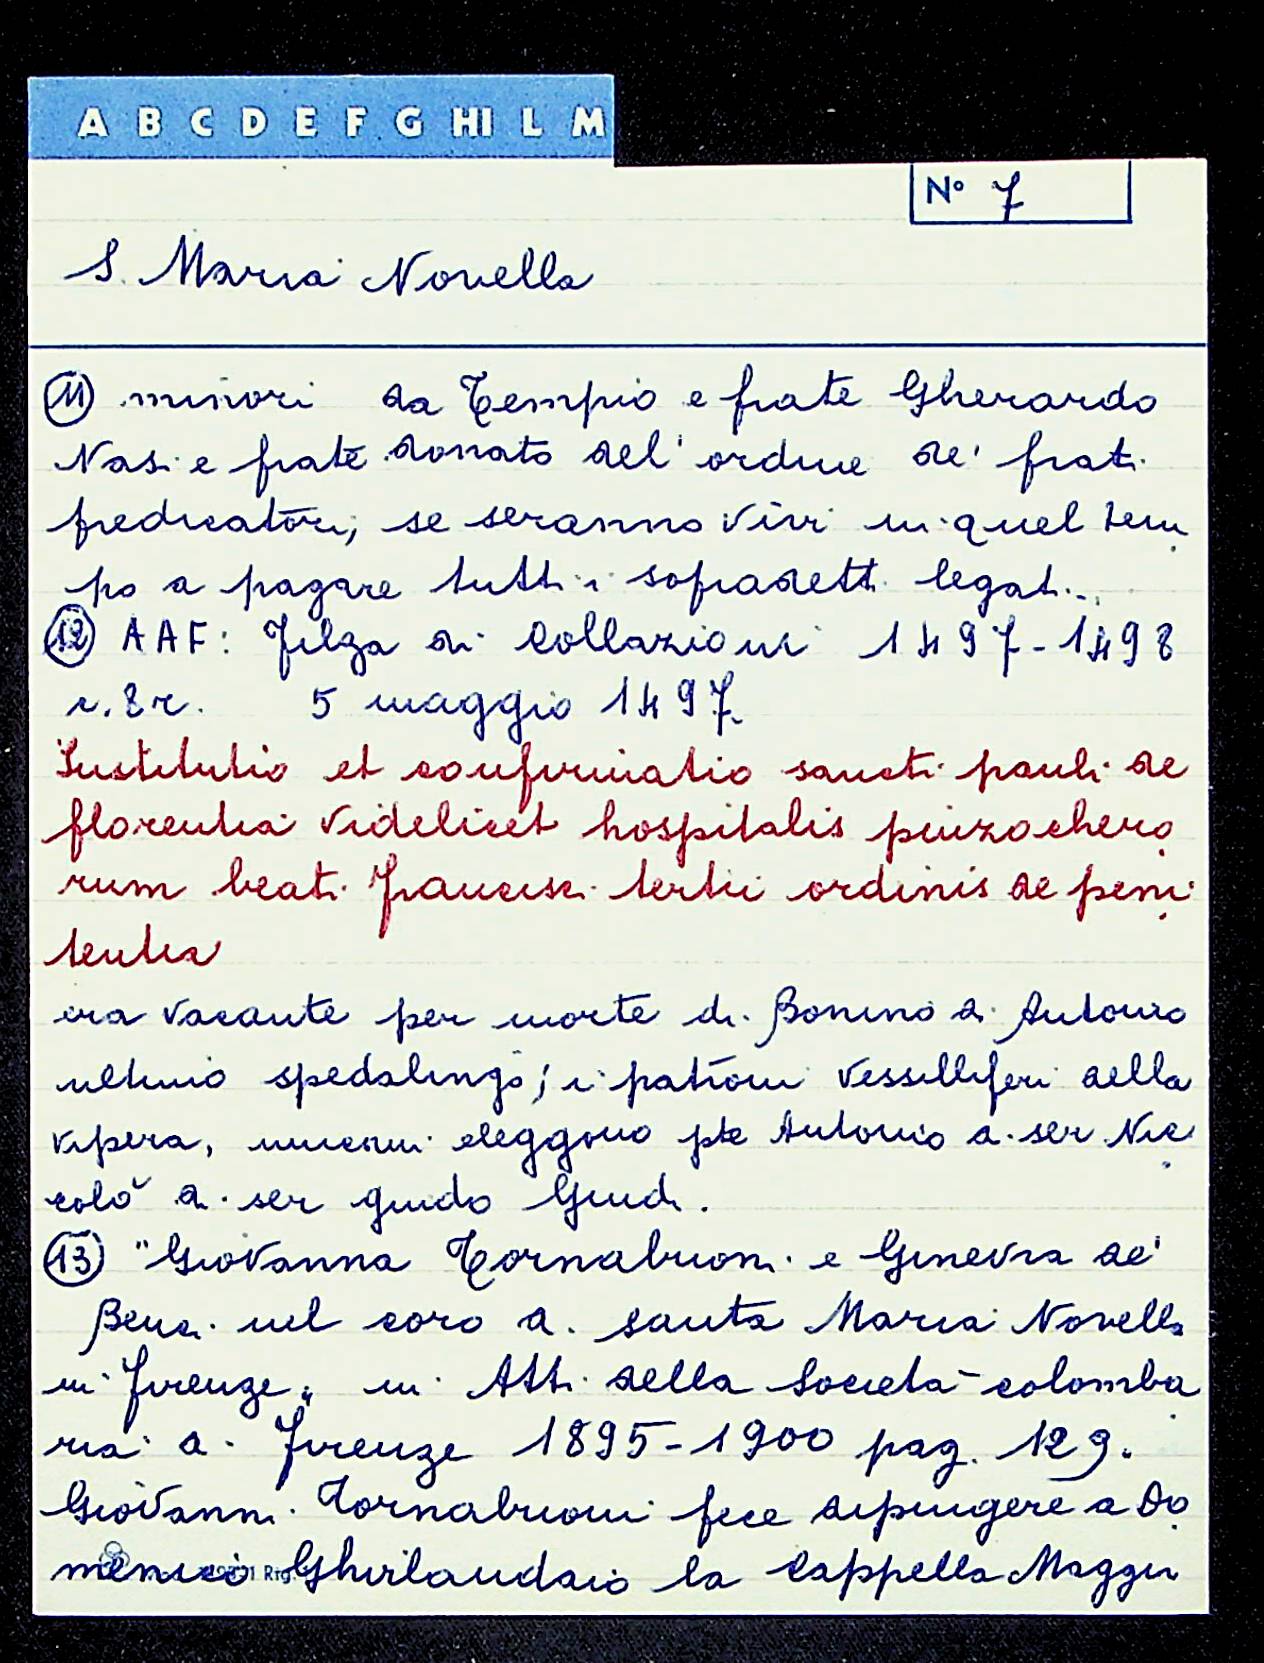 A B C D E F G HI L M
N° 7
S. Maria Novella
11 minori da Tempio e frate Gherardo
Nasi e frate donato dell'ordine de' frati
predicatori, se seranno vivi in quel tem
po a pagare tutti i sopradetti legati..
12 AAF: Filza di Collazioni 1497-1498
c. 8r. 5 maggio 1497
Institutio et confirmatio sancti pauli de
florentia videlicet hospitalis pinzochero
rum beati Francisci tertii ordinis de peni
tentia
era vacante per morte di Bonino di Antonio
ultimo spedalingo; i patroni vessilliferi della
vipera, unienni eleggono pte Antonio di ser Nic
colò di ser guido Guidi.
13 "Giovanna Tornabuoni e Ginevra de'
Benci nel coro di santa Maria Novella
in Firenze" in Atti della Società colomba
ria di Firenze 1895-1900 pag. 129.
Giovanni Tornabuoni fece dipingere a Do
menico Ghirlandaio la Cappella Maggio